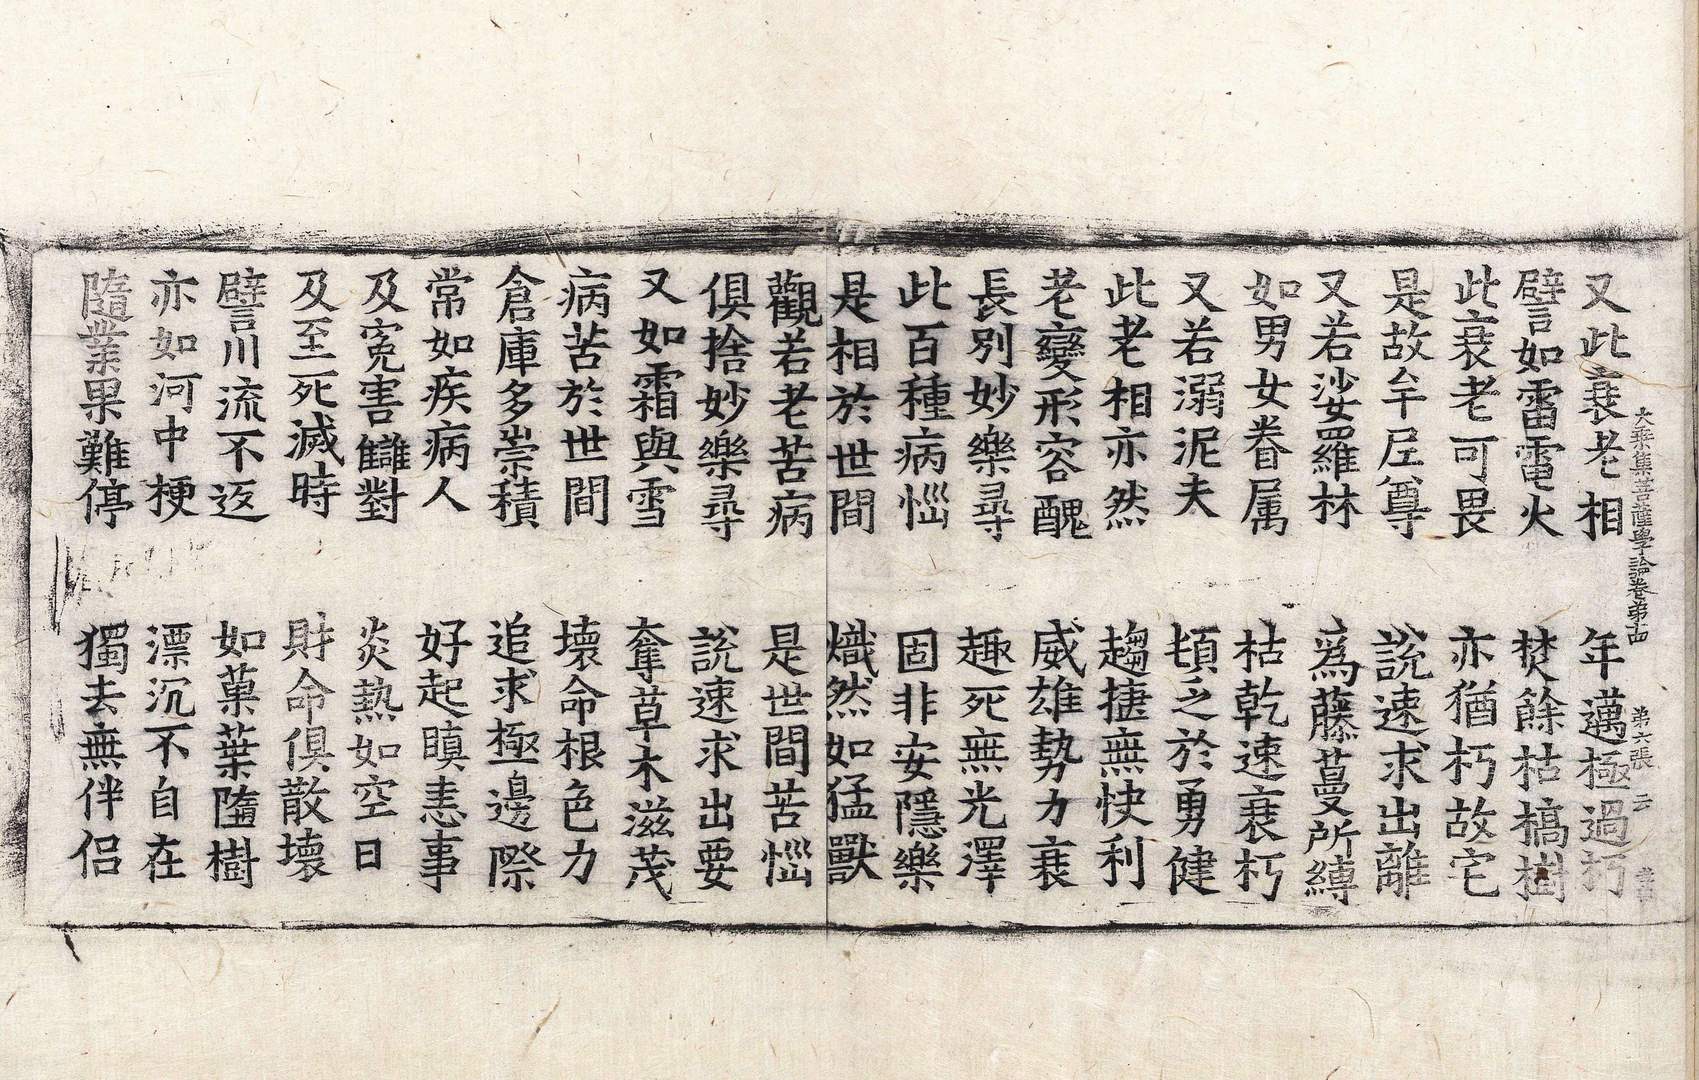 大乗集菩薩學論卷弟十四　弟六張　云
又此衰老相　年邁極過朽
譬如雷電火　焚餘枯槁樹
此衰老可畏　亦猶朽故宅
是故牟尼尊　說速求出離
又若沙羅林　爲藤蔓所縛
如男女眷属　枯乾速衰朽
又若溺泥夫　頓乏於勇健
此老相亦然　趨捷無快利
老變形容醜　威雄勢力衰
長別妙樂尋　趣死無光澤
此百種病惱　固非安隱樂
是相於世間　熾然如猛獸
觀若老苦病　是世間苦惱
俱捨妙樂尋　說速求出要
又如霜與雪　奪草木滋茂
病苦於世間　壞命根色力
倉庫多崇積　追求極邊際
常如疾病人　好起瞋恚事
及寃害讎對　炎熱如空日
及至死滅時　財命俱散壞
譬川流不返　如菓葉墮樹
亦如河中梗　漂沉不自在
隨業果難停　獨去無伴侣